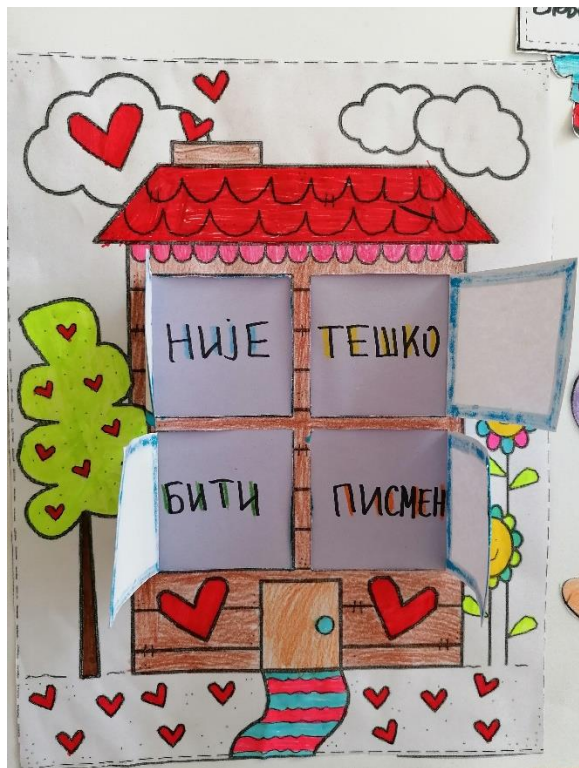 НИЈЕ ТЕШКО
БИТИ ПИСМЕН